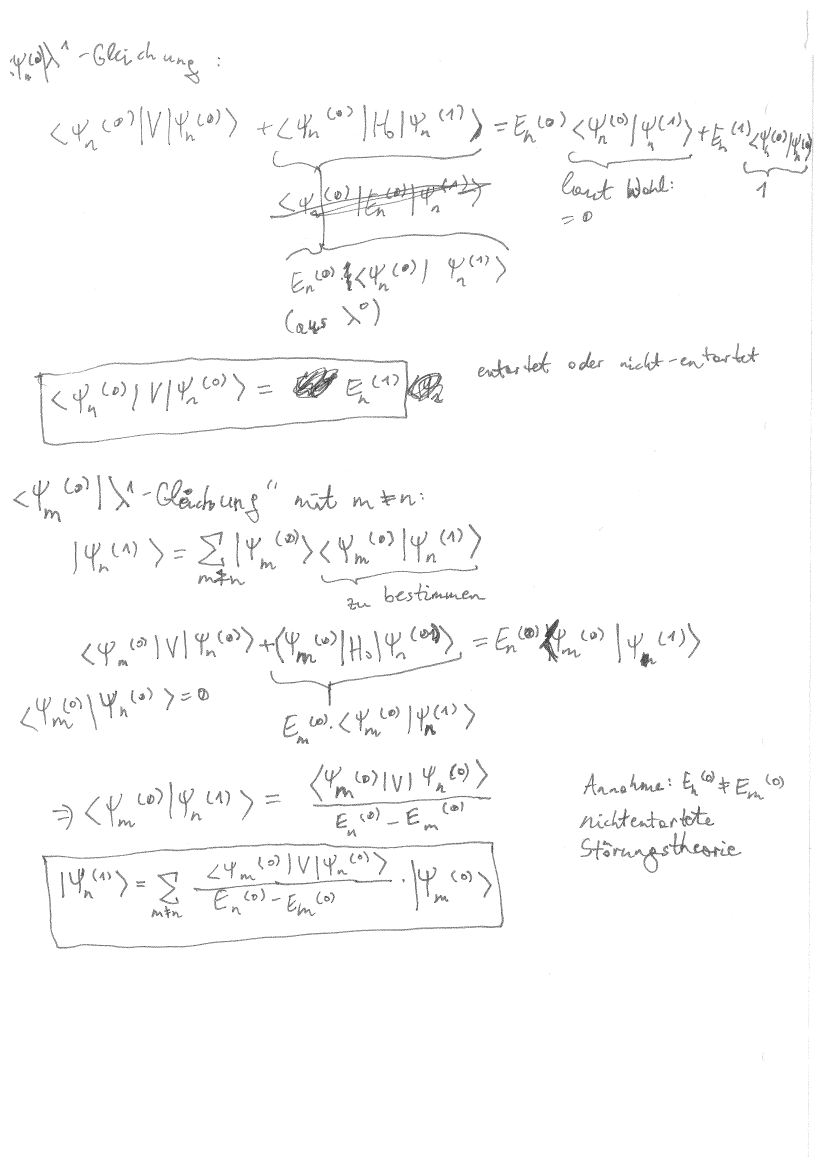 ⟨Ψₙ⁽⁰⁾|λ¹-Gleichung:
⟨Ψₙ⁽⁰⁾|V|Ψₙ⁽⁰⁾⟩ + ⟨Ψₙ⁽⁰⁾|H₀|Ψₙ⁽¹⁾⟩ = Eₙ⁽⁰⁾ ⟨Ψₙ⁽⁰⁾|Ψₙ⁽¹⁾⟩ + Eₙ⁽¹⁾ ⟨Ψₙ⁽⁰⁾|Ψₙ⁽⁰⁾⟩
⟨Ψₙ⁽⁰⁾|Eₙ⁽⁰⁾|Ψₙ⁽¹⁾⟩ laut Wahl: 1
= 0
Eₙ⁽⁰⁾·⟨Ψₙ⁽⁰⁾| Ψₙ⁽¹⁾⟩
(aus λ⁰)
⟨Ψₙ⁽⁰⁾|V|Ψₙ⁽⁰⁾⟩ = Eₙ⁽¹⁾ entartet oder nicht-entartet
⟨Ψₘ⁽⁰⁾|λ¹-Gleichung" mit m ≠ n:
|Ψₙ⁽¹⁾⟩ = ∑ₘ≠ₙ |Ψₘ⁽⁰⁾⟩⟨Ψₘ⁽⁰⁾|Ψₙ⁽¹⁾⟩
zu bestimmen
⟨Ψₘ⁽⁰⁾|V|Ψₙ⁽⁰⁾⟩ + ⟨Ψₘ⁽⁰⁾|H₀|Ψₙ⁽¹⁾⟩ = Eₙ⁽⁰⁾ ⟨Ψₘ⁽⁰⁾|Ψₙ⁽¹⁾⟩
⟨Ψₘ⁽⁰⁾|Ψₙ⁽⁰⁾⟩ = 0 Eₘ⁽⁰⁾·⟨Ψₘ⁽⁰⁾|Ψₙ⁽¹⁾⟩
⇒ ⟨Ψₘ⁽⁰⁾|Ψₙ⁽¹⁾⟩ = ⟨Ψₘ⁽⁰⁾|V|Ψₙ⁽⁰⁾⟩ / Eₙ⁽⁰⁾ − Eₘ⁽⁰⁾ Annahme: Eₙ⁽⁰⁾ ≠ Eₘ⁽⁰⁾
nichtentartete
Störungstheorie
|Ψₙ⁽¹⁾⟩ = ∑ₘ≠ₙ ⟨Ψₘ⁽⁰⁾|V|Ψₙ⁽⁰⁾⟩ / Eₙ⁽⁰⁾ − Eₘ⁽⁰⁾ · |Ψₘ⁽⁰⁾⟩